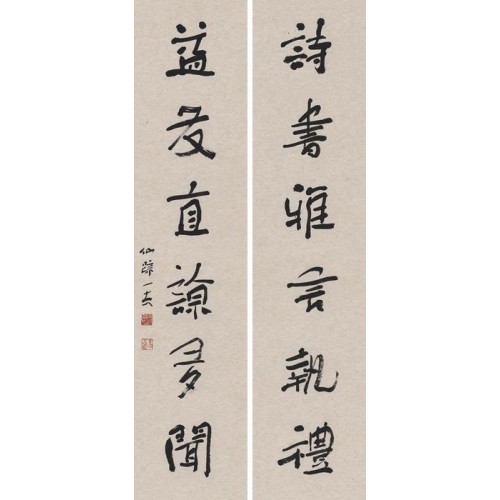 詩書雅言執禮
益友直諒多聞
仙蹤一去